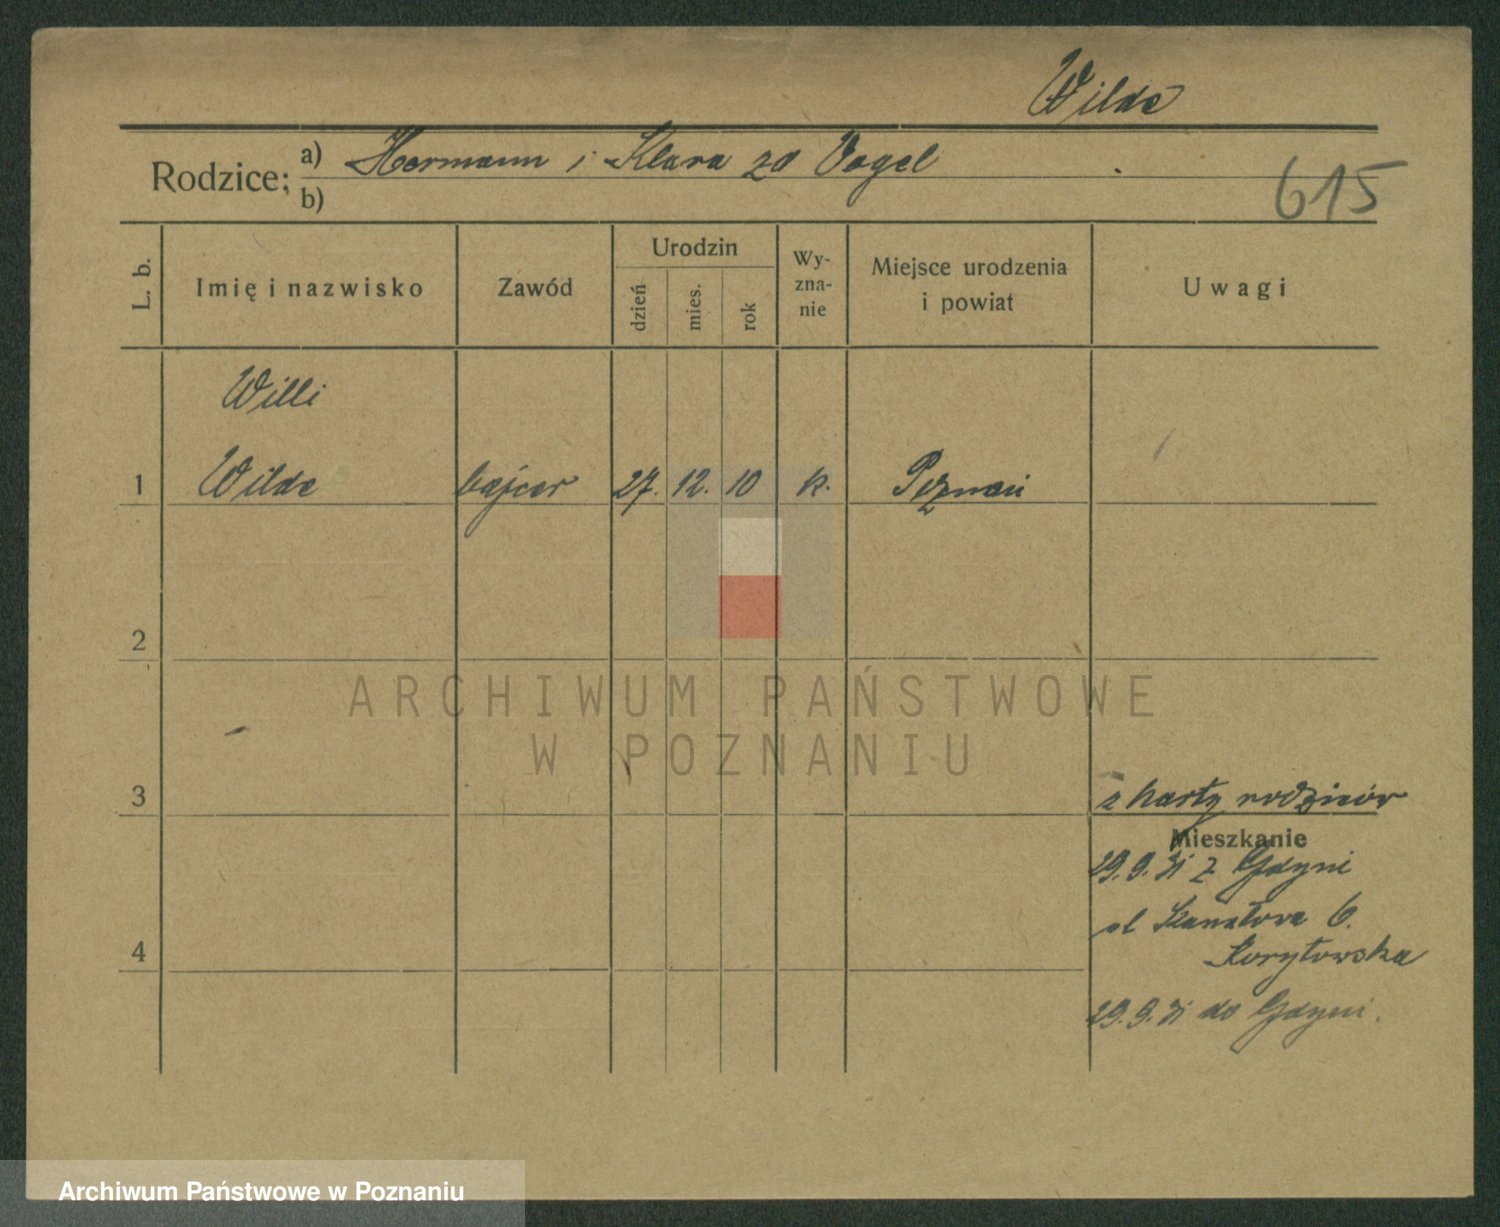 Wilde
Rodzice; a) Hermann i Klara zd Vogel
b)
615
L. b. Imię i nazwisko Zawód Urodzin dzień mies. rok Wyznanie Miejsce urodzenia i powiat Uwagi
Willi
1 Wilde bajcer 27. 12. 10 k. Poznań
2
3
z karty rodziców
Mieszkanie
29.9.31 z Gdyni
ul Kanałowa 6.
Korytowska
4
29.9.31 do Gdyni.
ARCHIWUM PAŃSTWOWE
W POZNANIU
Archiwum Państwowe w Poznaniu